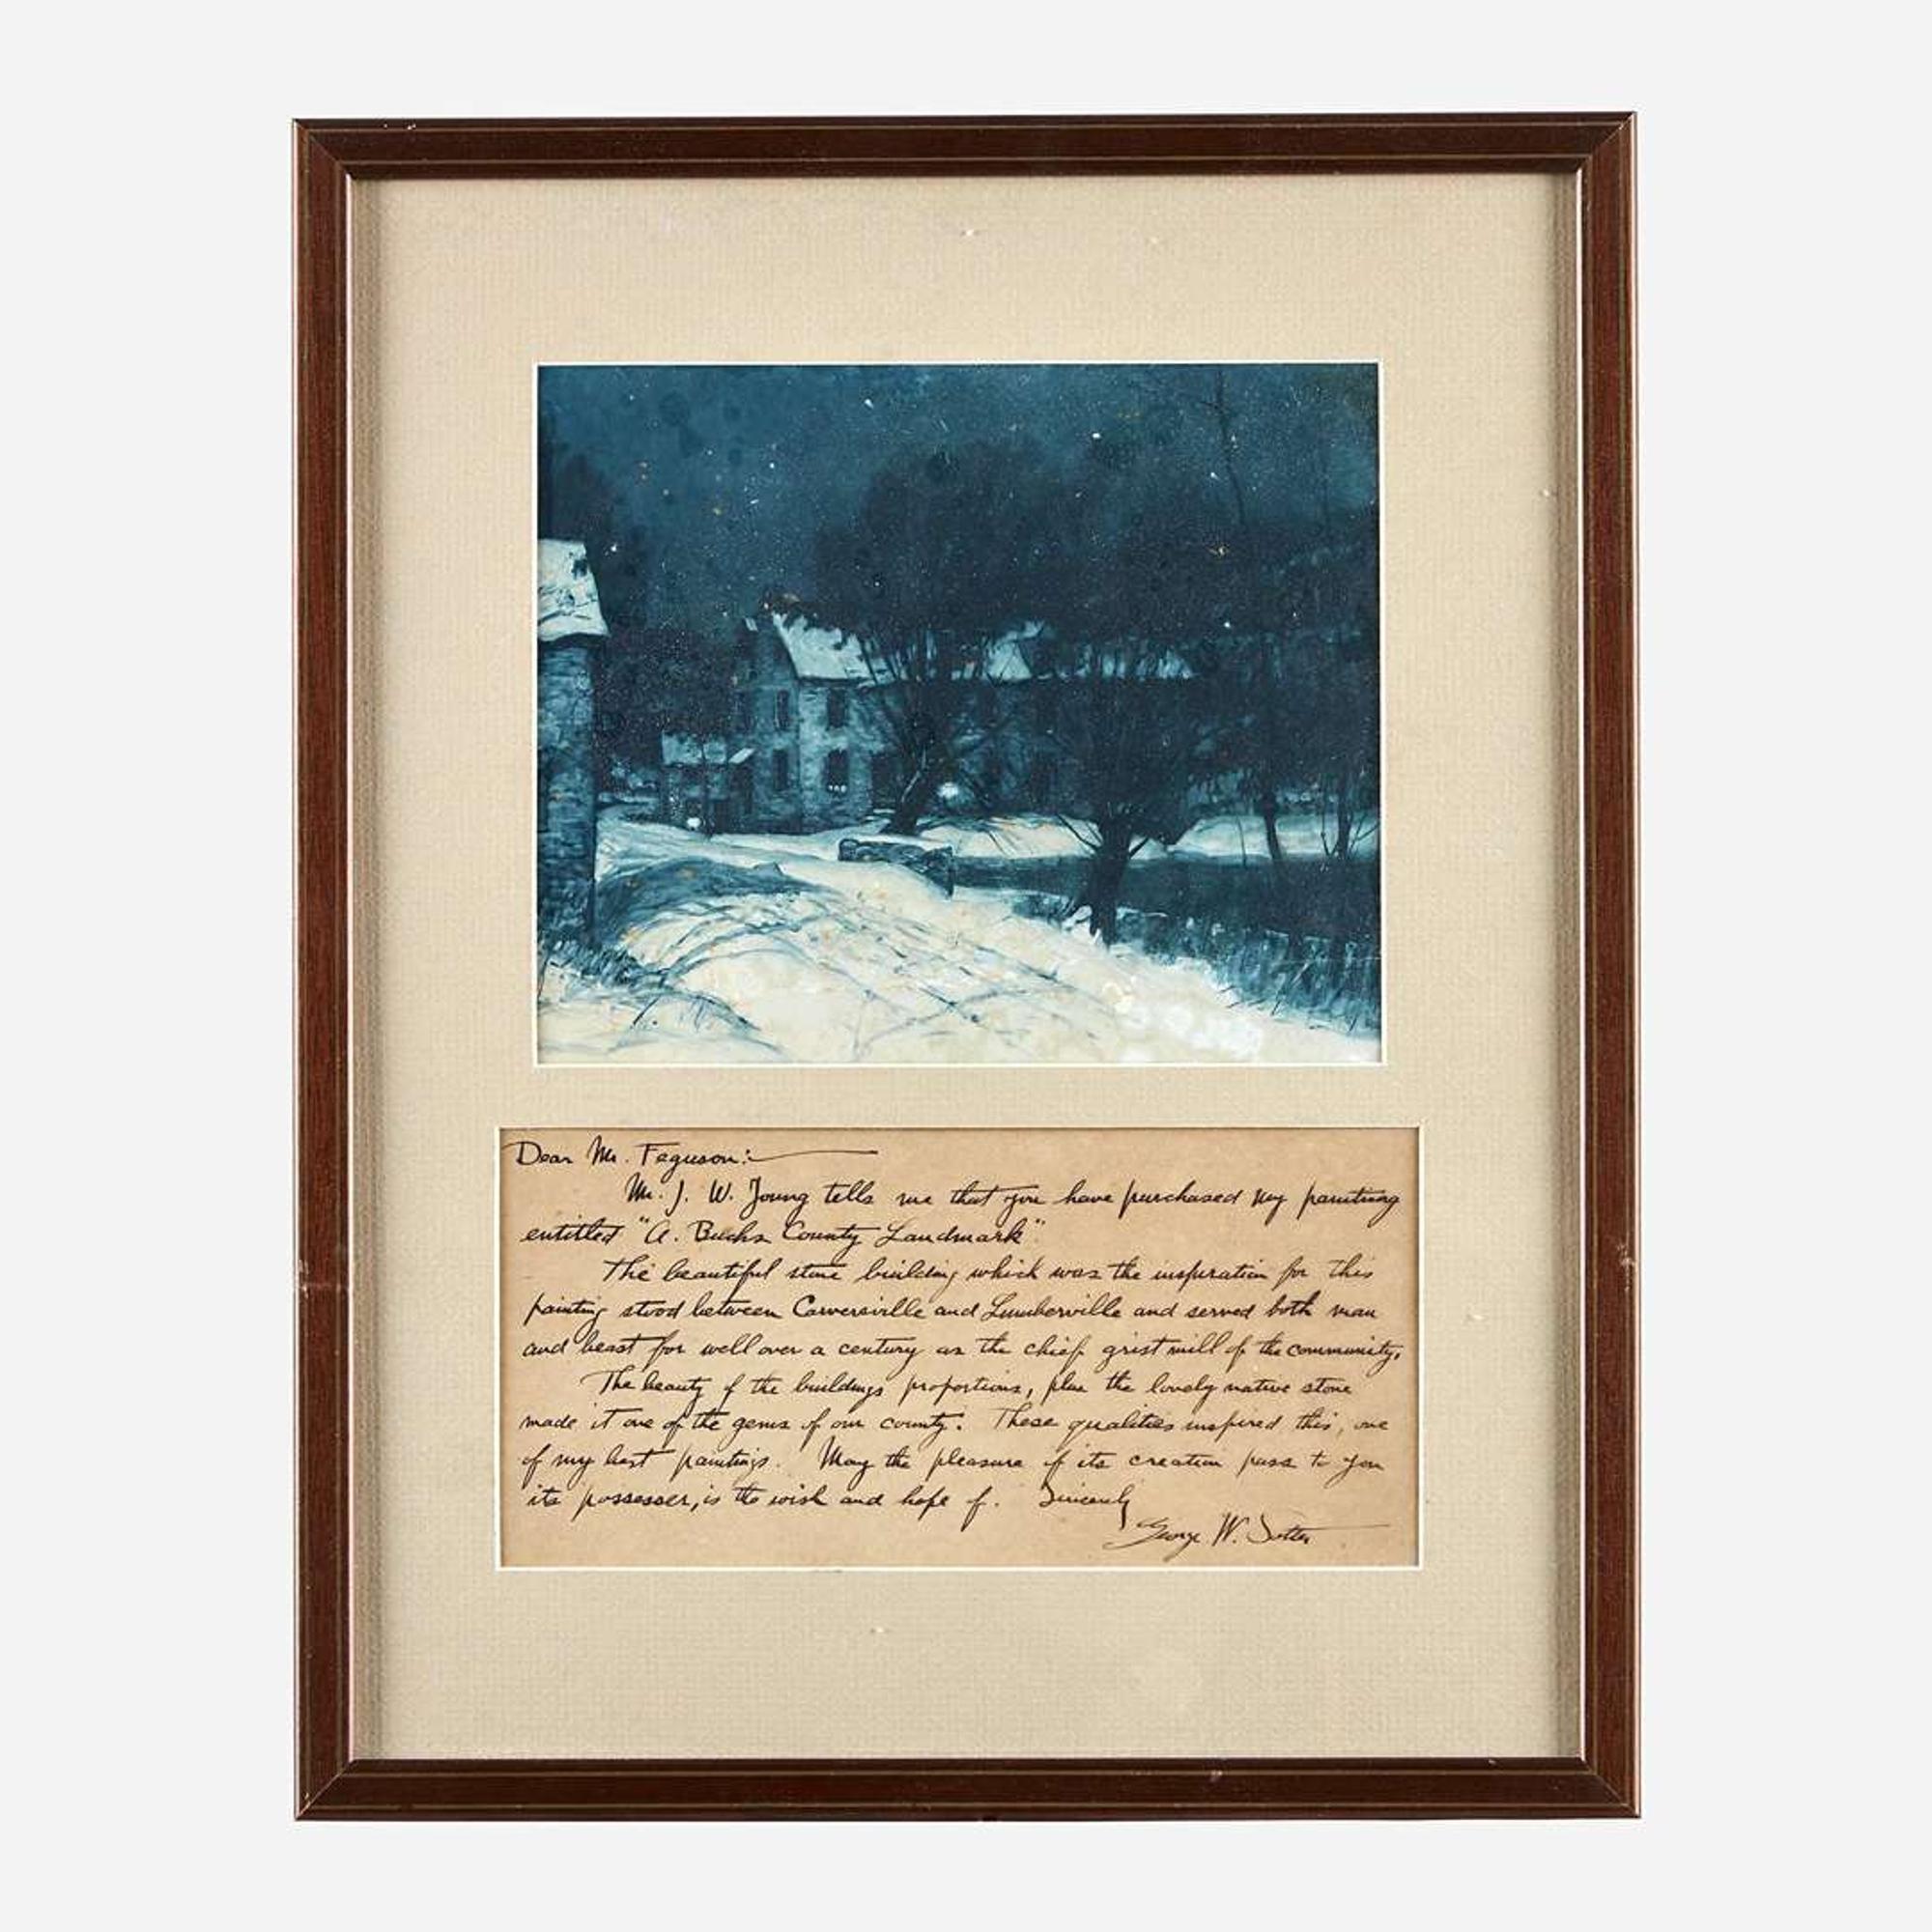 Dear Mr. Feguson:
Mr. J. W. Young tells me that you have purchased my painting
entitled "A. Bucks County Landmark"
The beautiful stone building which was the inspiration for this
painting stood between Carversville and Lumberville and served both man
and beast for well over a century as the chief grist mill of the community.
The beauty of the buildings proportions, plus the lovely native stone
made it one of the gems of our county. These qualities inspired this, one
of my best paintings. May the pleasure of its creation pass to you
its possesser, is the wish and hope of. Sincerely
George W. Sotter